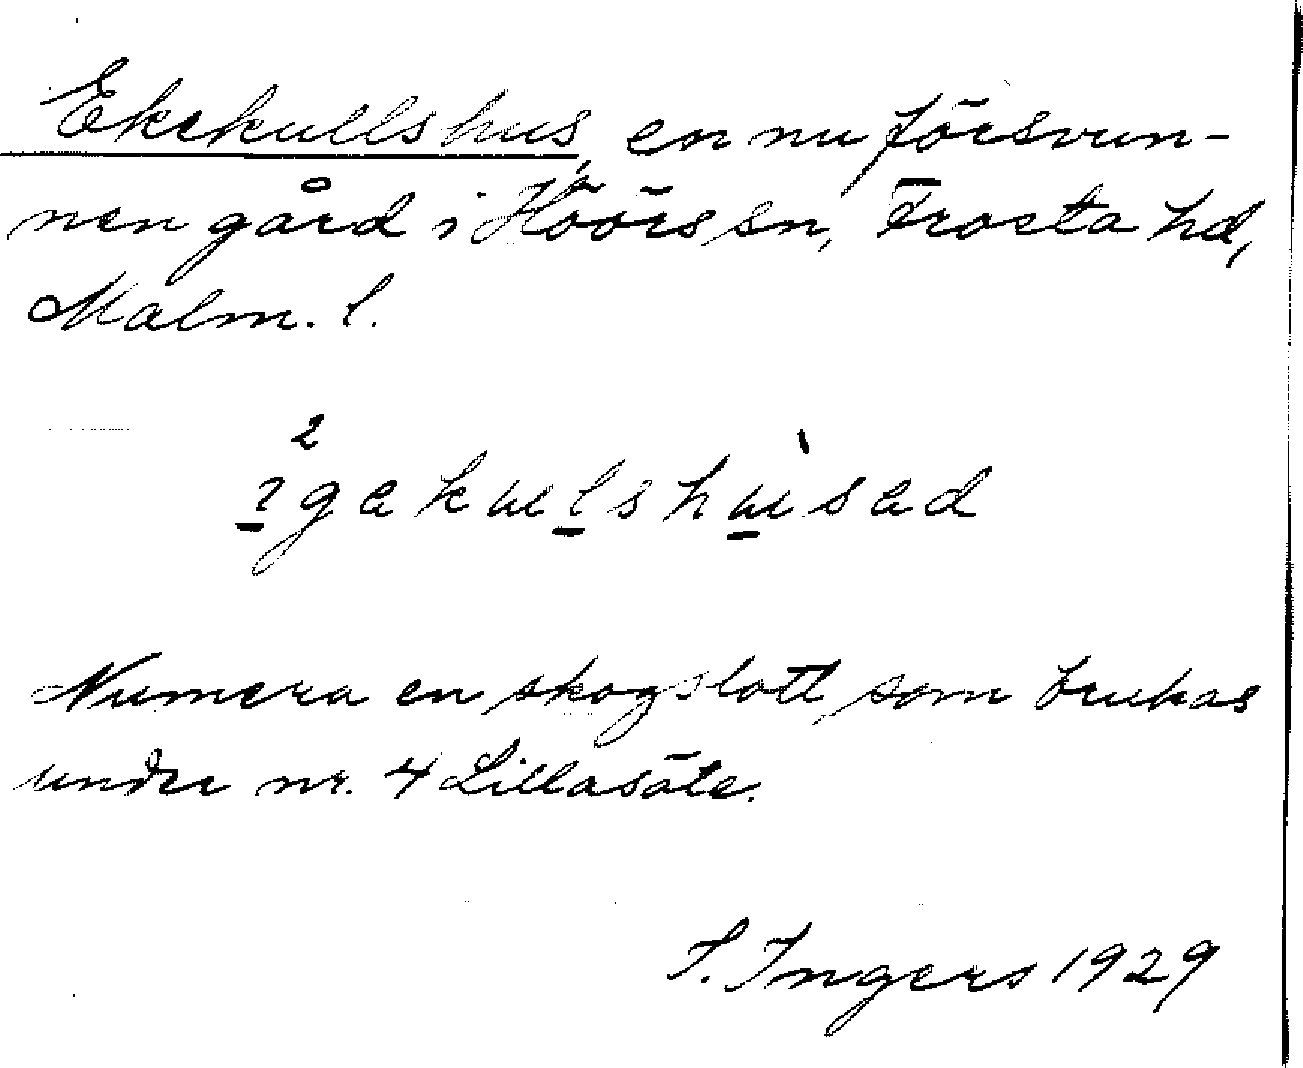 Ekekullshus, en nu försvun-
nen gård i Höörs sn, Frosta hd,
Malm. l.
gekulshused
Numera en skogslott, som brukas
under nr. 4 Lillasäte.
I. Ingers 1929